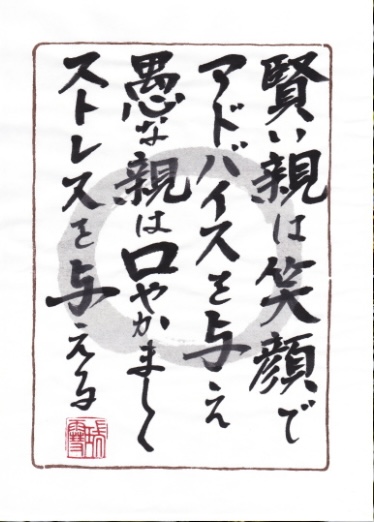 賢い親は笑顔で
アドバイスを与え
愚な親は口やかましく
ストレスを与える